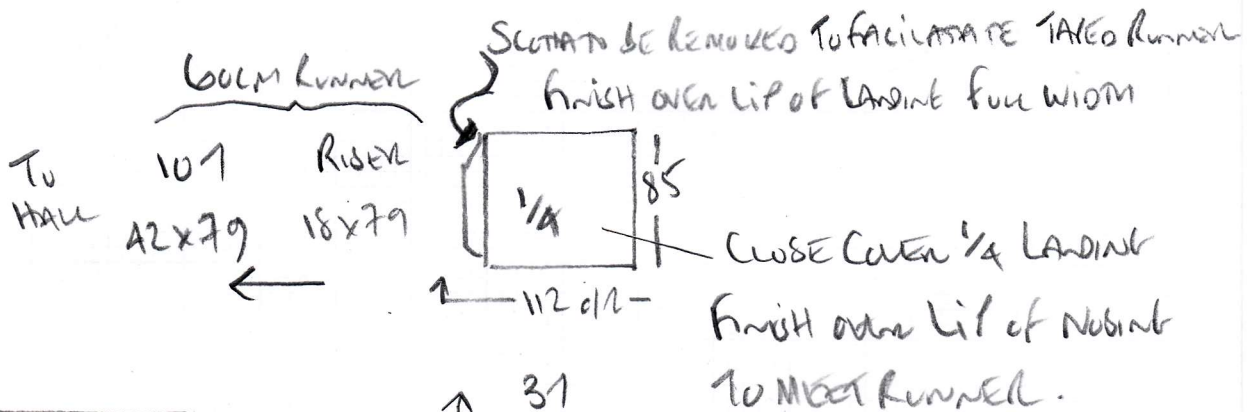 SCOTIA TO BE REMOVED TO FACILATATE TAPED RUNNER
FINISH OVER LIP OF LANDING FULL WIDTH
60CM RUNNER
TO HALL
101 RISER
42x79 18x79
1/4
85
112 d/l
CLOSE COVER 1/4 LANDING
FINISH OVER LIP OF NOSING
TO MEET RUNNER.
31